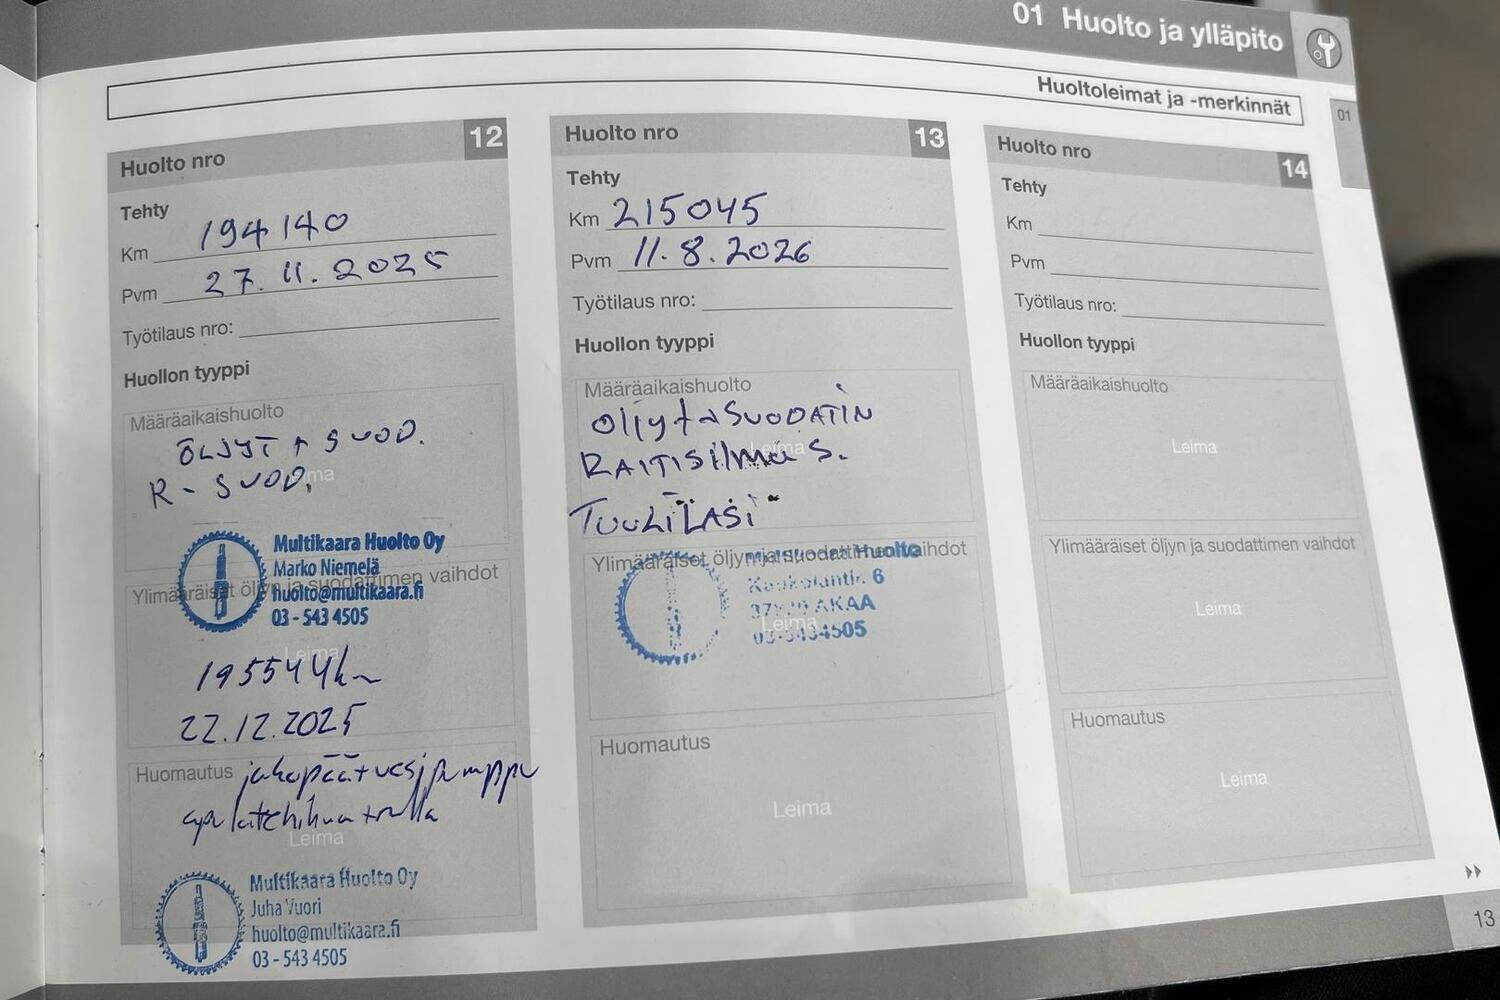 01 Huolto ja ylläpito
Huoltoleimat ja -merkinnät
01
Huolto nro 12
Tehty
Km 194140
Pvm 27.11.2025
Työtilaus nro:
Huollon tyyppi
Määräaikaishuolto
ÖLJYT + SUOD.
R - SUOD.
Leima
Multikaara Huolto Oy
Marko Niemelä
huolto@multikaara.fi
03 - 543 4505
Ylimääräiset öljyn ja suodattimen vaihdot
Leima
195544 km
22.12.2025
Huomautus jakopää + vesipumppu
apulaitehihna + rulla
Leima
Multikaara Huolto Oy
Juha Vuori
huolto@multikaara.fi
03 - 543 4505
Huolto nro 13
Tehty
Km 215045
Pvm 11.8.2026
Työtilaus nro:
Huollon tyyppi
Määräaikaishuolto
Öljyt + SUODATIN
Leima
RAITISilma S.
TUULILASI
Ylimääräiset öljyn ja suodattimen vaihdot
Huolto
6
AKAA
Leima
03-5434505
Huomautus
Leima
Huolto nro 14
Tehty
Km
Pvm
Työtilaus nro:
Huollon tyyppi
Määräaikaishuolto
Leima
Ylimääräiset öljyn ja suodattimen vaihdot
Leima
Huomautus
Leima
13